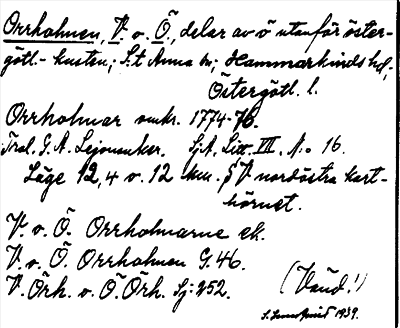 Orrholmen, V. o. Ö., delar av ö utanför öster-
götl.- kusten; S:t Anna sn; Hammarkinds hd;
Östergötl. l.
Orrholmar omkr. 1774-76.
Trol. G. A. Lejonanker. SjA, Litt. III, No 16.
Läge 12,4 o. 12 km. f V nordöstra kart-
hörnet.
V. o. Ö. Orrholmarne ek.
V. o. Ö. Orrholmen G. 46.
V. Örh. o. Ö. Örh. Sj: 252.
(Vänd!)
1939.